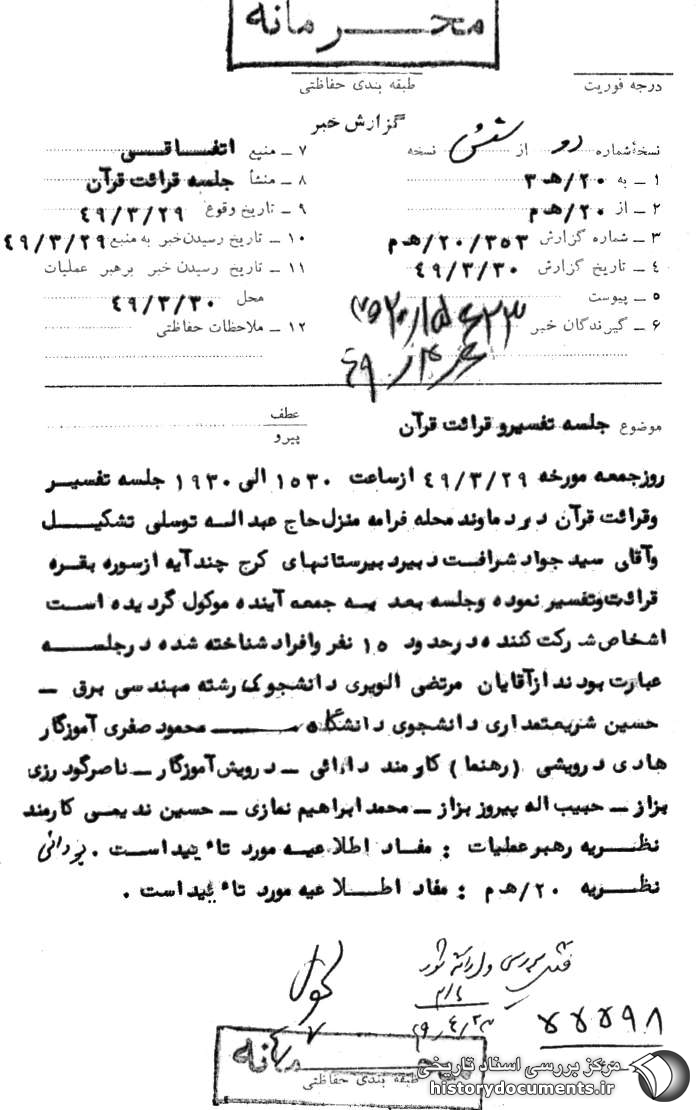 محرمانه
درجه فوریت
طبقه بندی حفاظتی
گزارش خبر
نسخهٔ شماره دو از شش نسخه
۱ – به ۲۰/هـ ۳
۲ – از ۲۰/هـ م
۳ – شماره گزارش ۲۰/۳۵۳/هـ م
۴ – تاریخ گزارش ۴۹/۳/۳۰
۵ – پیوست
۶ – گیرندگان خبر
۷ – منبع اتفاقی
۸ – منشأ جلسه قرائت قرآن
۹ – تاریخ وقوع ۴۹/۳/۲۹
۱۰ – تاریخ رسیدن خبر به منبع ۴۹/۳/۲۹
۱۱ – تاریخ رسیدن خبر برهبر عملیات
محل ۴۹/۳/۳۰
۱۲ – ملاحظات حفاظتی
موضوع جلسه تفسیرو قرائت قرآن
عطف
پیرو
روزجمعه مورخه ۴۹/۳/۲۹ ازساعت ۱۵۳۰ الی ۱۹۳۰ جلسه تفسیر
وقرائت قرآن دردماوند محله فرامه منزل حاج عبداله توسلی تشکیل
وآقای سید جواد شرافت دبیردبیرستانهای کرج چندآیه ازسوره بقره
قرائت وتفسیر نموده وجلسه بعد به جمعه آینده موکول گردیده است
اشخاص شرکت کننده درحدود ۱۵ نفر وافراد شناخته شده درجلسه
عبارت بودند ازآقایان مرتضی الویری دانشجوی رشته مهندسی برق –
حسین شریعتمداری دانشجوی دانشگاه – محمود صفری آموزگار
هادی درویشی (رهنما) کارمند دارائی – درویش آموزگار – ناصرگودرزی
بزاز – حبیب اله پیروز بزاز – محمدابراهیم نمازی – حسین ندیمی کارمند
نظریه رهبرعملیات : مفاد اطلاعیه مورد تائیداست . یزدانی
نظریه ۲۰/هـ م : مفاد اطلاعیه مورد تائیداست .
محرمانه
طبقه بندی حفاظتی
مرکز بررسی اسناد تاریخی
historydocuments.ir